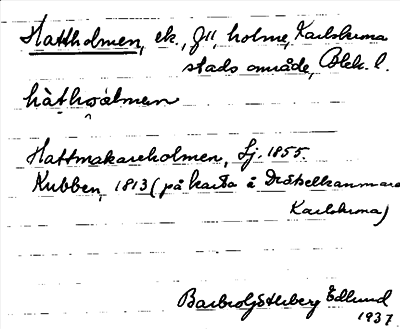 Hattholmen, ek., J11, holme, Karlskrona
stads område, Blek. l.
hàthωálmen
Hattmakareholmen, Sj. 1855.
Kubben, 1813 (på karta å Drätselkammare
Karlskrona)
Edlund
1937